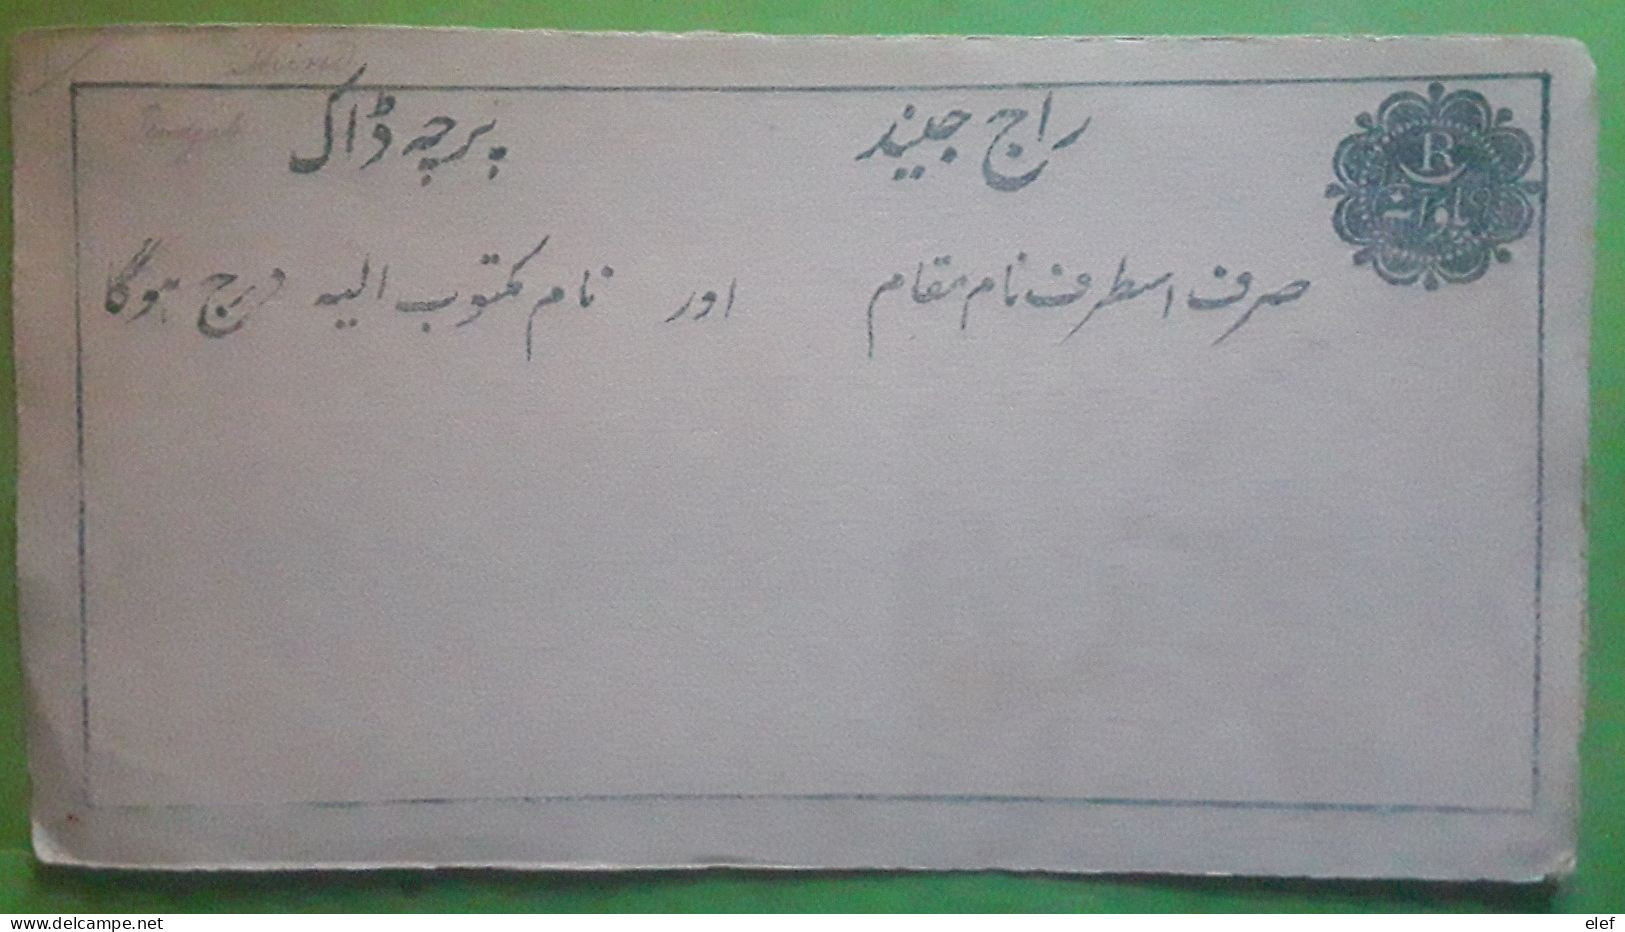 راج جیند پرچہ ڈاک
صرف اسطرف نام مقام اور نام مکتوب الیہ درج ہوگا
R
Punjab
www.delcampe.net
elef